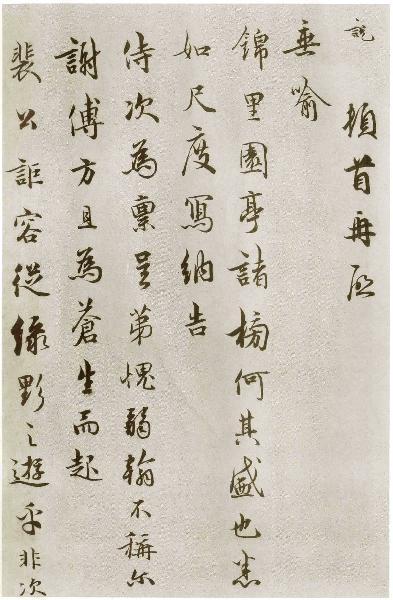 說
頓首再啟
垂喻
錦里園亭諸榜何其盛也悉
如尺度寫納告
侍次為稟呈第愧弱翰不稱尔
謝傅方且為蒼生而起
裴公詎容從綠野之遊乎非次